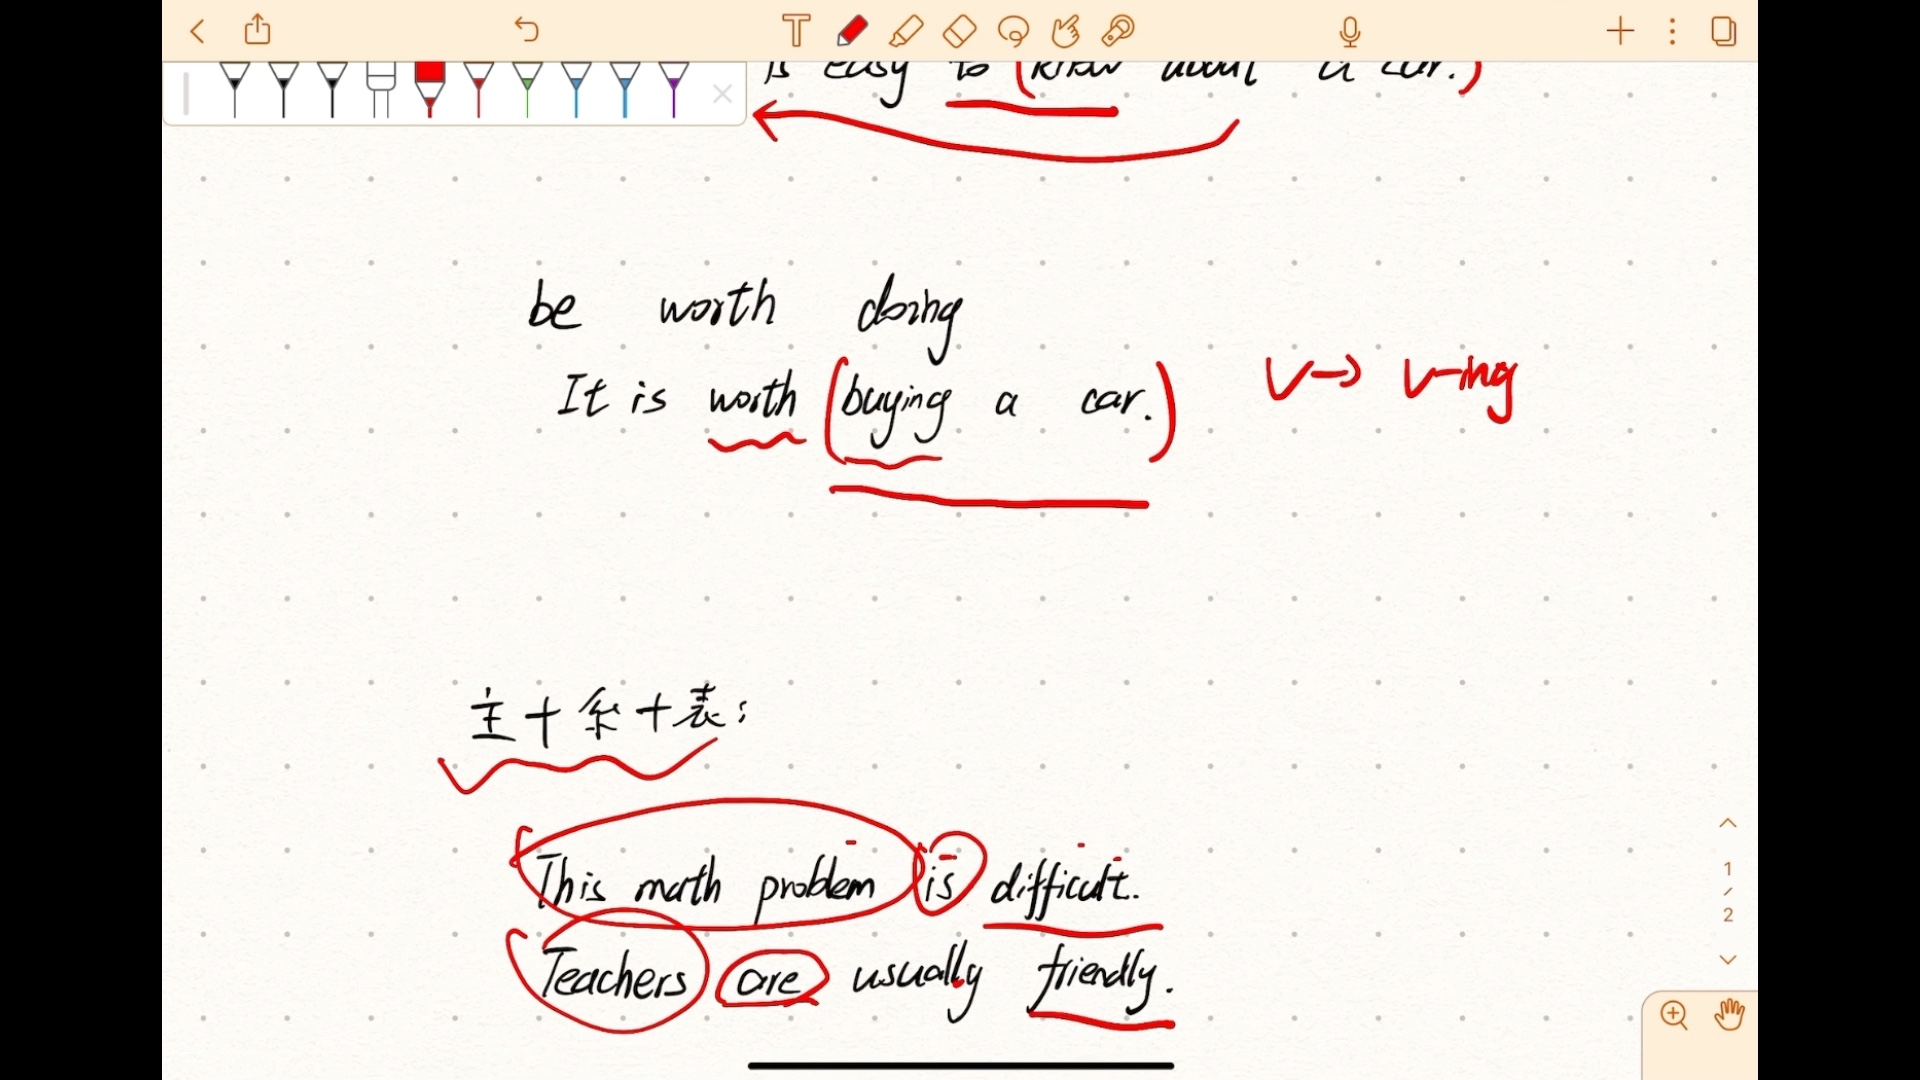 is easy to (know about a car.)
be worth doing
It is worth (buying a car.)
V→ V-ing
主+系+表:
This math problem is difficult.
Teachers are usually friendly.
1
2